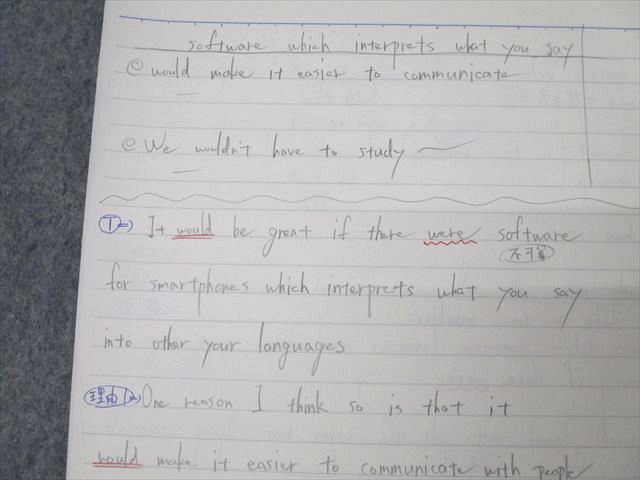 software which interprets what you say
◎ would make it easier to communicate
◎ We wouldn't have to study
①⇒ It would be great if there were software
不可算
for smartphones which interprets what you say
into other your languages
理由1⇒ One reason I think so is that it
would make it easier to communicate with people